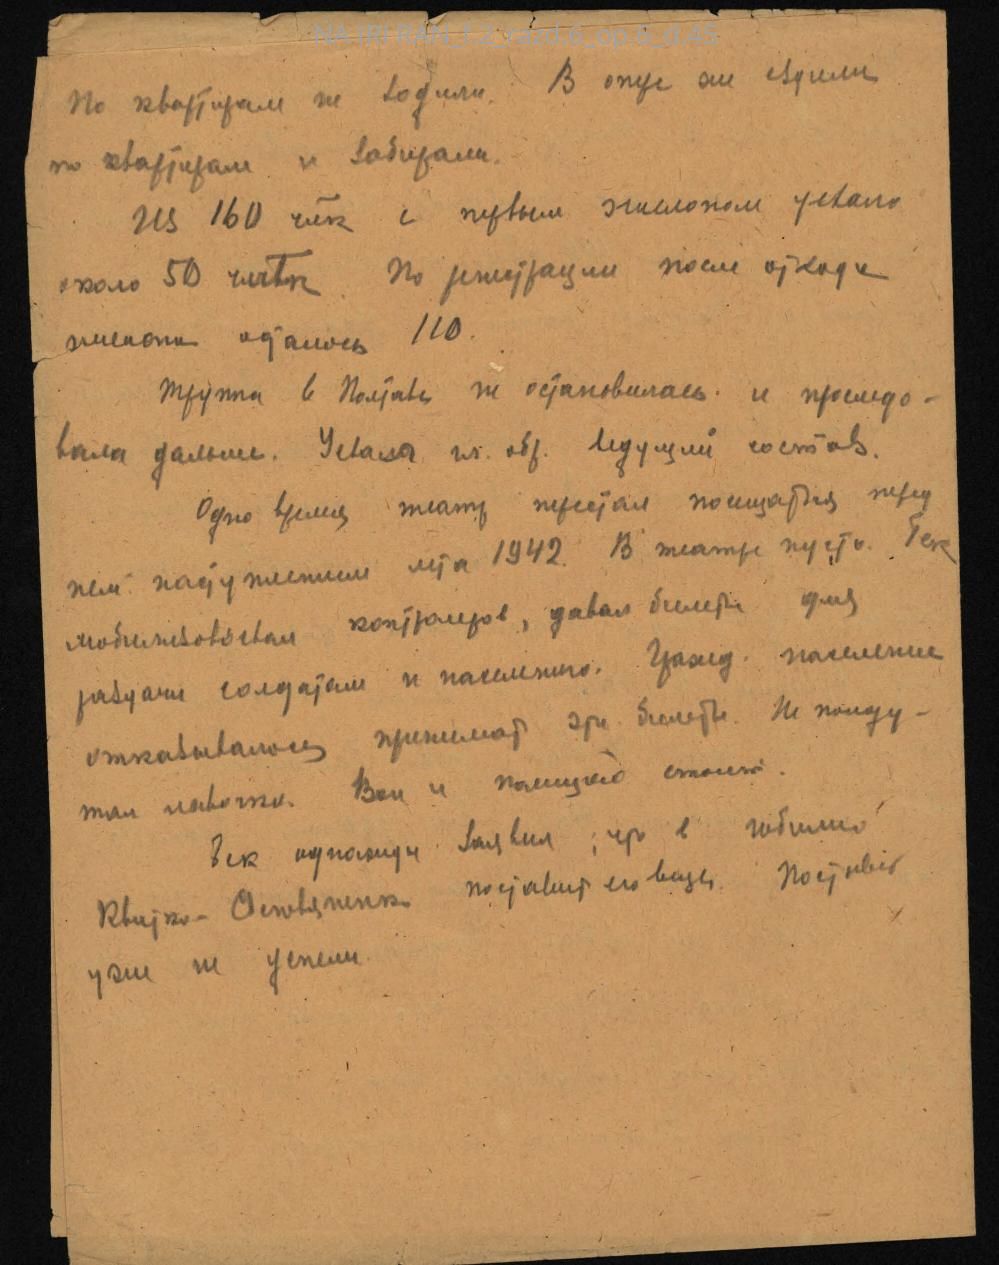 NA IRI RAN_f.2_razd.6_op.6_d.45
по квартирам не ходили. В опере же ездили
по квартирам и забирали.
Из 160 чел-к с первым эшелоном уехало
около 50 чел-ек. По регистрации после отхода
эшелона осталось 110.
Труппа в Полтаве не остановилась и проследо-
вала дальше. Уехал гл. обр. ведущий состав.
Одно время театр перестал посещаться перед
нем. наступлением лета 1942. В театре пусто. Бек
мобилизовывал контролеров, давал билеты для
раздачи солдатам и населению. Гражд. население
отказывалось принимать эти билеты. Не помогу-
Бек однажды заявил, что в юбилей
Квитко-Основяненко поставит его вещь. Поставить
уже не успели.